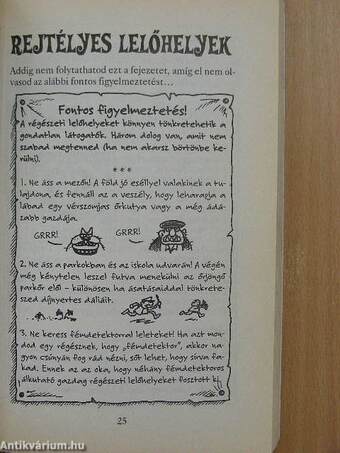 REJTÉLYES LELŐHELYEK
Addig nem folytathatod ezt a fejezetet, amíg el nem ol-
vasod az alábbi fontos figyelmeztetést...
Fontos figyelmeztetés!
A régészeti lelőhelyeket könnyen tönkretehetik a
gondatlan látogatók. Három dolog van, amit nem
szabad megtenned (ha nem akarsz börtönbe ke-
rülni).
***
1. Ne áss a mezőn! A föld jó eséllyel valakinek a tu-
lajdona, és fennáll az a veszély, hogy leharapja a
lábad egy vérszomjas őrkutya vagy a még ádá-
zabb gazdája.
GRRR!
GRRR!
2. Ne áss a parkokban és az iskola udvarán! A végén
még kénytelen leszel futva menekülni az őrjöngő
parkőr elől – különösen ha ásatásaiddal tönkrete-
szed díjnyertes dáliáit.
3. Ne keress fémdetektorral leleteket! Ha azt mon-
dod egy régésznek, hogy „fémdetektor", akkor na-
gyon csúnyán fog rád nézni, sőt lehet, hogy sírva fa-
kad. Ennek az az oka, hogy néhány fémdetektoros
álkutató gazdag régészeti lelőhelyeket fosztott ki,
25
Antikvárium.hu